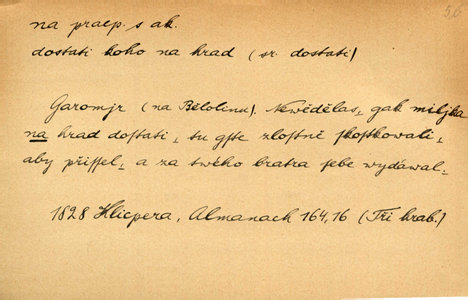 5,6
na praep. s ak.
dostati koho na hrad (sr. dostati)
Garomjr (na Bělolinu). Newědělas, gak miljka
na hrad doſtati, tu gſte zloſtně ſkoſtkowali,
aby přiſſel, a za twého bratra ſebe wydáwal.
1828 Klicpera, Almanach 164,16 (Tři hrab.)